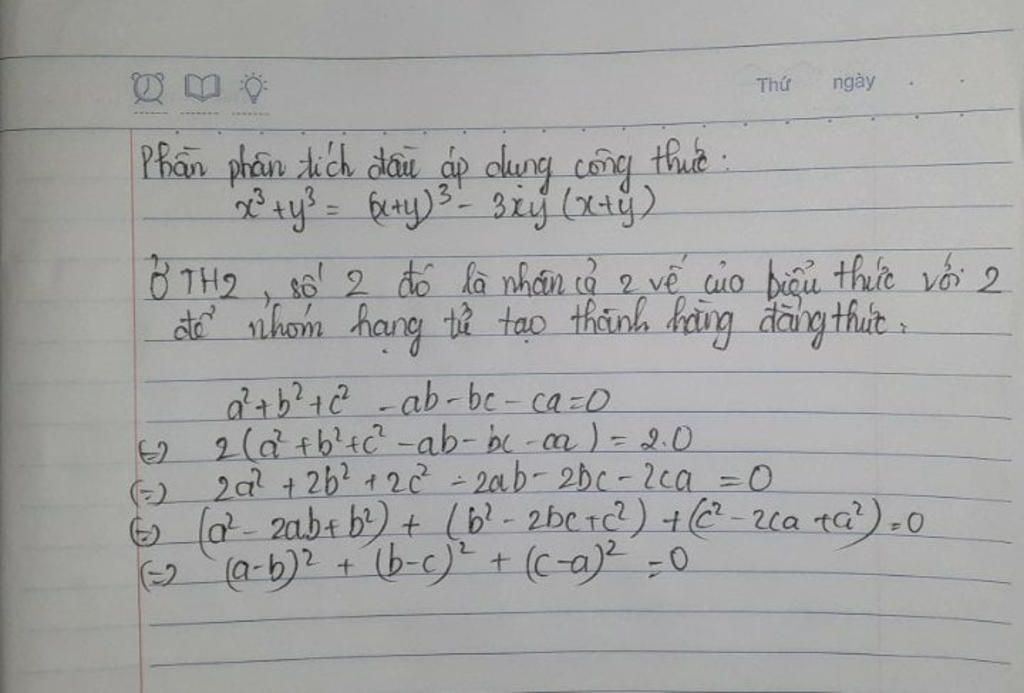 Thứ ngày
Phần phân tích đầu áp dụng công thức:
x³+y³ = (x+y)³ - 3xy (x+y)
Ở TH2, số 2 đó là nhân cả 2 vế của biểu thức với 2
để nhóm hạng tử tạo thành hằng đẳng thức.
a²+b²+c² -ab-bc-ca=0
(=) 2(a²+b²+c²-ab-bc-ca) = 2.0
(=) 2a²+2b²+2c²-2ab-2bc-2ca =0
(=) (a²-2ab+b²) + (b²-2bc+c²) +(c²-2ca+a²)=0
(=) (a-b)² + (b-c)² + (c-a)² =0